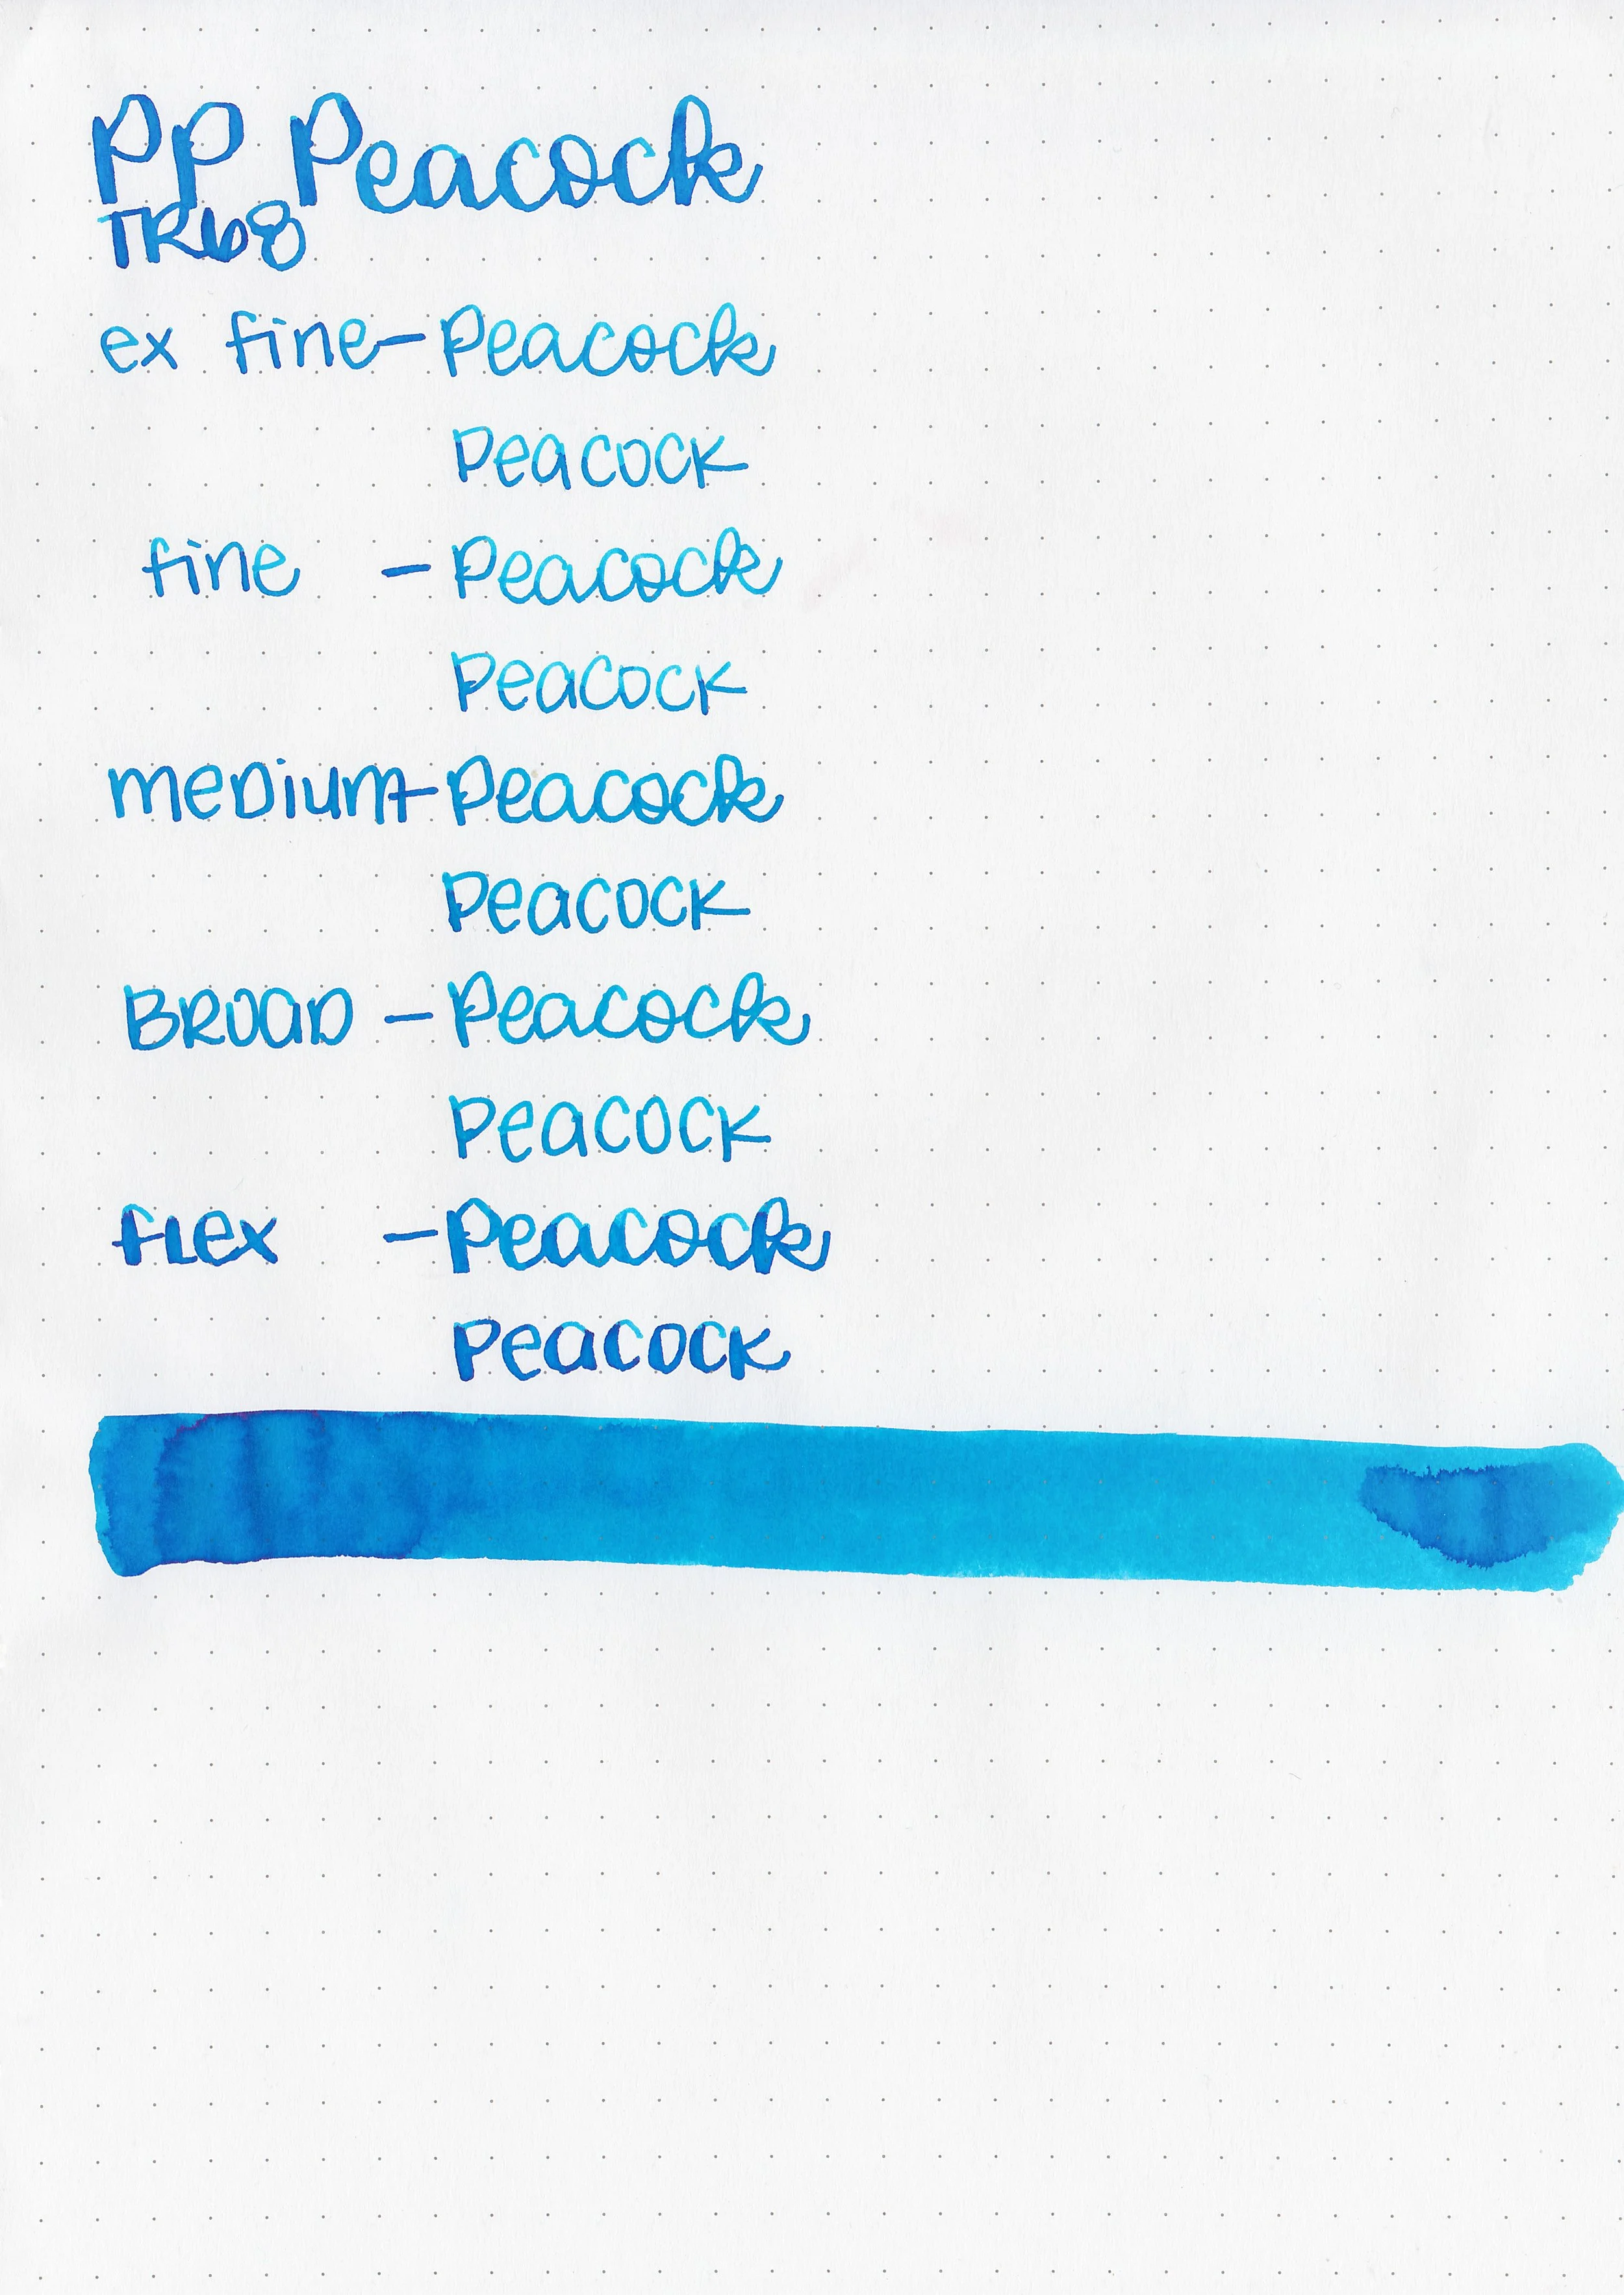 PP Peacock
TR68
ex fine - Peacock
Peacock
fine - Peacock
Peacock
meDium - Peacock
Peacock
BROAD - Peacock
Peacock
fLex - Peacock
Peacock